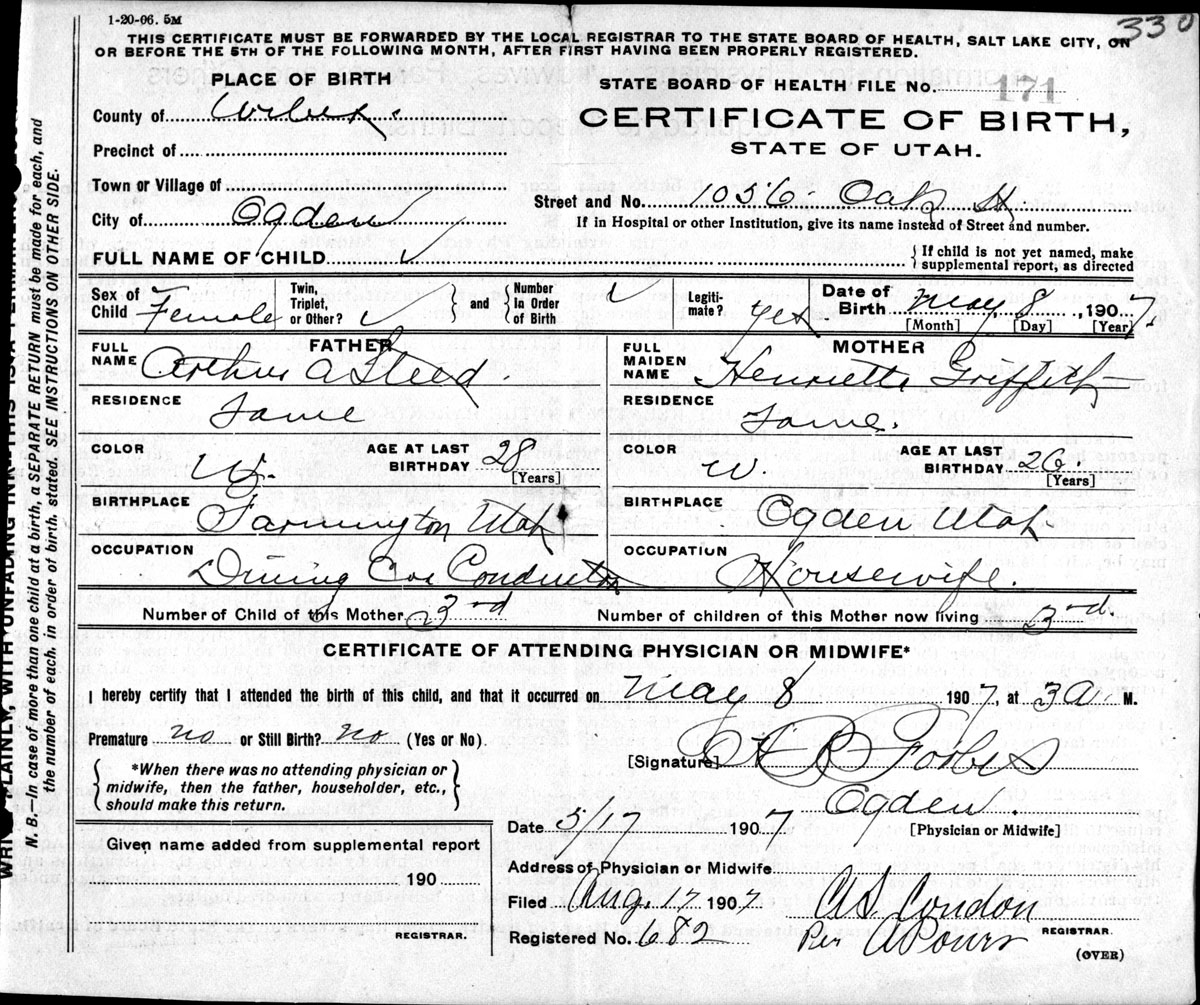 330
1-20-06. 5M
THIS CERTIFICATE MUST BE FORWARDED BY THE LOCAL REGISTRAR TO THE STATE BOARD OF HEALTH, SALT LAKE CITY, ON
OR BEFORE THE 5TH OF THE FOLLOWING MONTH, AFTER FIRST HAVING BEEN PROPERLY REGISTERED.
PLACE OF BIRTH
STATE BOARD OF HEALTH FILE No. 171
County of Weber.
CERTIFICATE OF BIRTH,
STATE OF UTAH.
Precinct of
Town or Village of
Street and No. 1056 Oak St
City of Ogden
If in Hospital or other Institution, give its name instead of Street and number.
FULL NAME OF CHILD
{ If child is not yet named, make
supplemental report, as directed
Sex of Child Female
Twin, Triplet, or Other? } and { Number In Order of Birth
Legiti-mate? yes
Date of Birth May 8, 1907.
[Month] [Day] [Year]
FATHER
FULL NAME Arthur A Steed.
MOTHER
FULL MAIDEN NAME Henrietta Griffith
RESIDENCE Same
RESIDENCE Same.
COLOR W. AGE AT LAST BIRTHDAY 28 [Years]
COLOR W. AGE AT LAST BIRTHDAY 26. [Years]
BIRTHPLACE Farmington Utah
BIRTHPLACE Ogden Utah
OCCUPATION Dining Car Conductor
OCCUPATION Housewife.
Number of Child of this Mother 3rd
Number of children of this Mother now living 3rd.
CERTIFICATE OF ATTENDING PHYSICIAN OR MIDWIFE*
I hereby certify that I attended the birth of this child, and that it occurred on May 8 1907, at 3 A. M.
Premature no or Still Birth? no (Yes or No).
[Signature] Forbes
{ *When there was no attending physician or
midwife, then the father, householder, etc.,
should make this return. }
Ogden.
Date 5/17 1907.
[Physician or Midwife]
Given name added from supplemental report
190
REGISTRAR.
Address of Physician or Midwife
Filed Aug. 17 1907
Registered No. 682
REGISTRAR.
Per
(OVER)
N. B.—In case of more than one child at a birth, a SEPARATE RETURN must be made for each, and
the number of each, in order of birth, stated. SEE INSTRUCTIONS ON OTHER SIDE.
PLAINLY, WITH UNFADING INK—THIS IS A